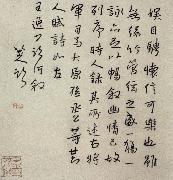 娛目騁懷信可樂也雖
無絲竹管弦之盛一觴一
詠亦足以暢敘幽情已故
列序時人錄其所述右將
軍司馬太原孫丞公等廿六
人賦詩如左
王逸少臨河敘
八大山人